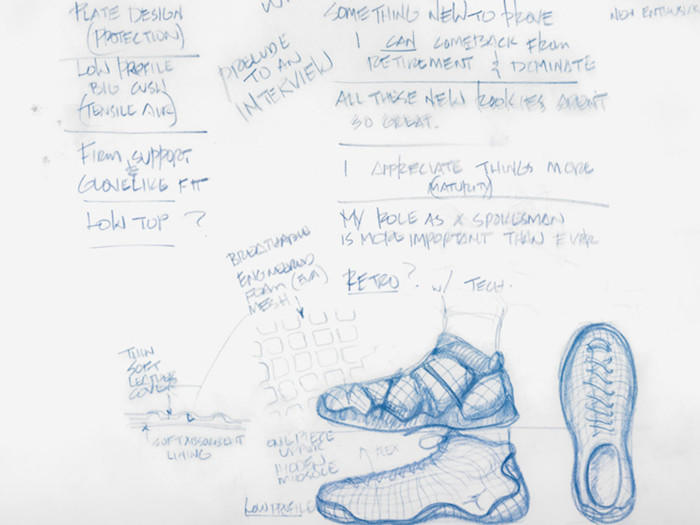 PLATE DESIGN
(PROTECTION)
LOW PROFILE
BIG CUSH
(TENSILE AIR)
FIRM SUPPORT
&
GLOVELIKE FIT
LOW TOP ?
PRELUDE
TO AN
INTERVIEW
SOMETHING NEW TO PROVE
I CAN COMEBACK FROM
RETIREMENT & DOMINATE
ALL THESE NEW ROOKIES AREN'T
SO GREAT.
I APPRECIATE THINGS MORE
(MATURITY)
MY ROLE AS A SPOKESMAN
IS MORE IMPORTANT THAN EVER
RETRO? w/ TECH.
BREATHABLE
ENGINEERED
FOAM (EVA)
MESH
THIN
SOFT
LEATHER
COVER
SOFT ABSORBENT
LINING
ONE PIECE
UPPER
HIDDEN
MIDSOLE
FLEX
LOW PROFILE